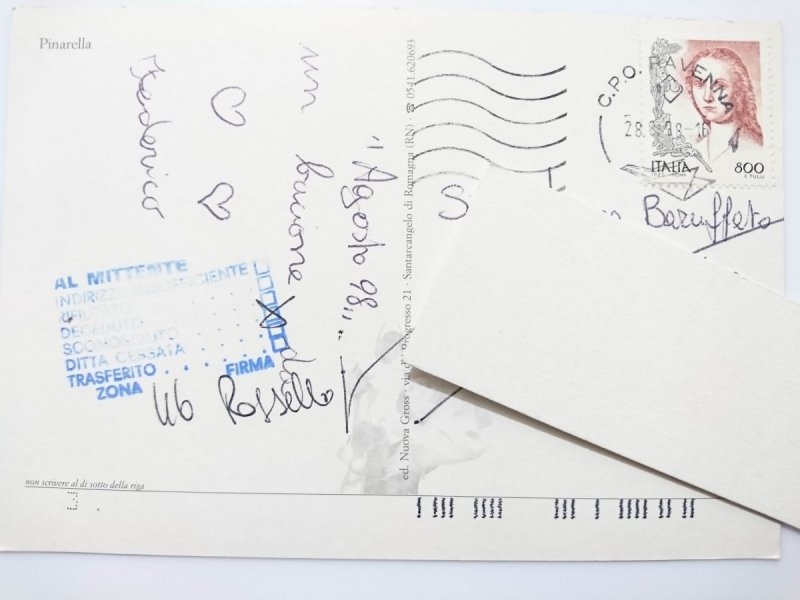 Pinarella
"Agosto 98"
un bacione
da
Federico
AL MITTENTE
INDIRIZZO INSUFFICIENTE
RIFIUTATO
DECEDUTO
SCONOSCIUTO
DITTA CESSATA
TRASFERITO
ZONA FIRMA
Rossella
non scrivere al di sotto della riga
ed. Nuova Gross · via del progresso 21 · Santarcangelo di Romagna (RN) · ☎ 0541.620693
C.P.O. RAVENNA
ITALIA 800
F. TULLI
S
Baruffato